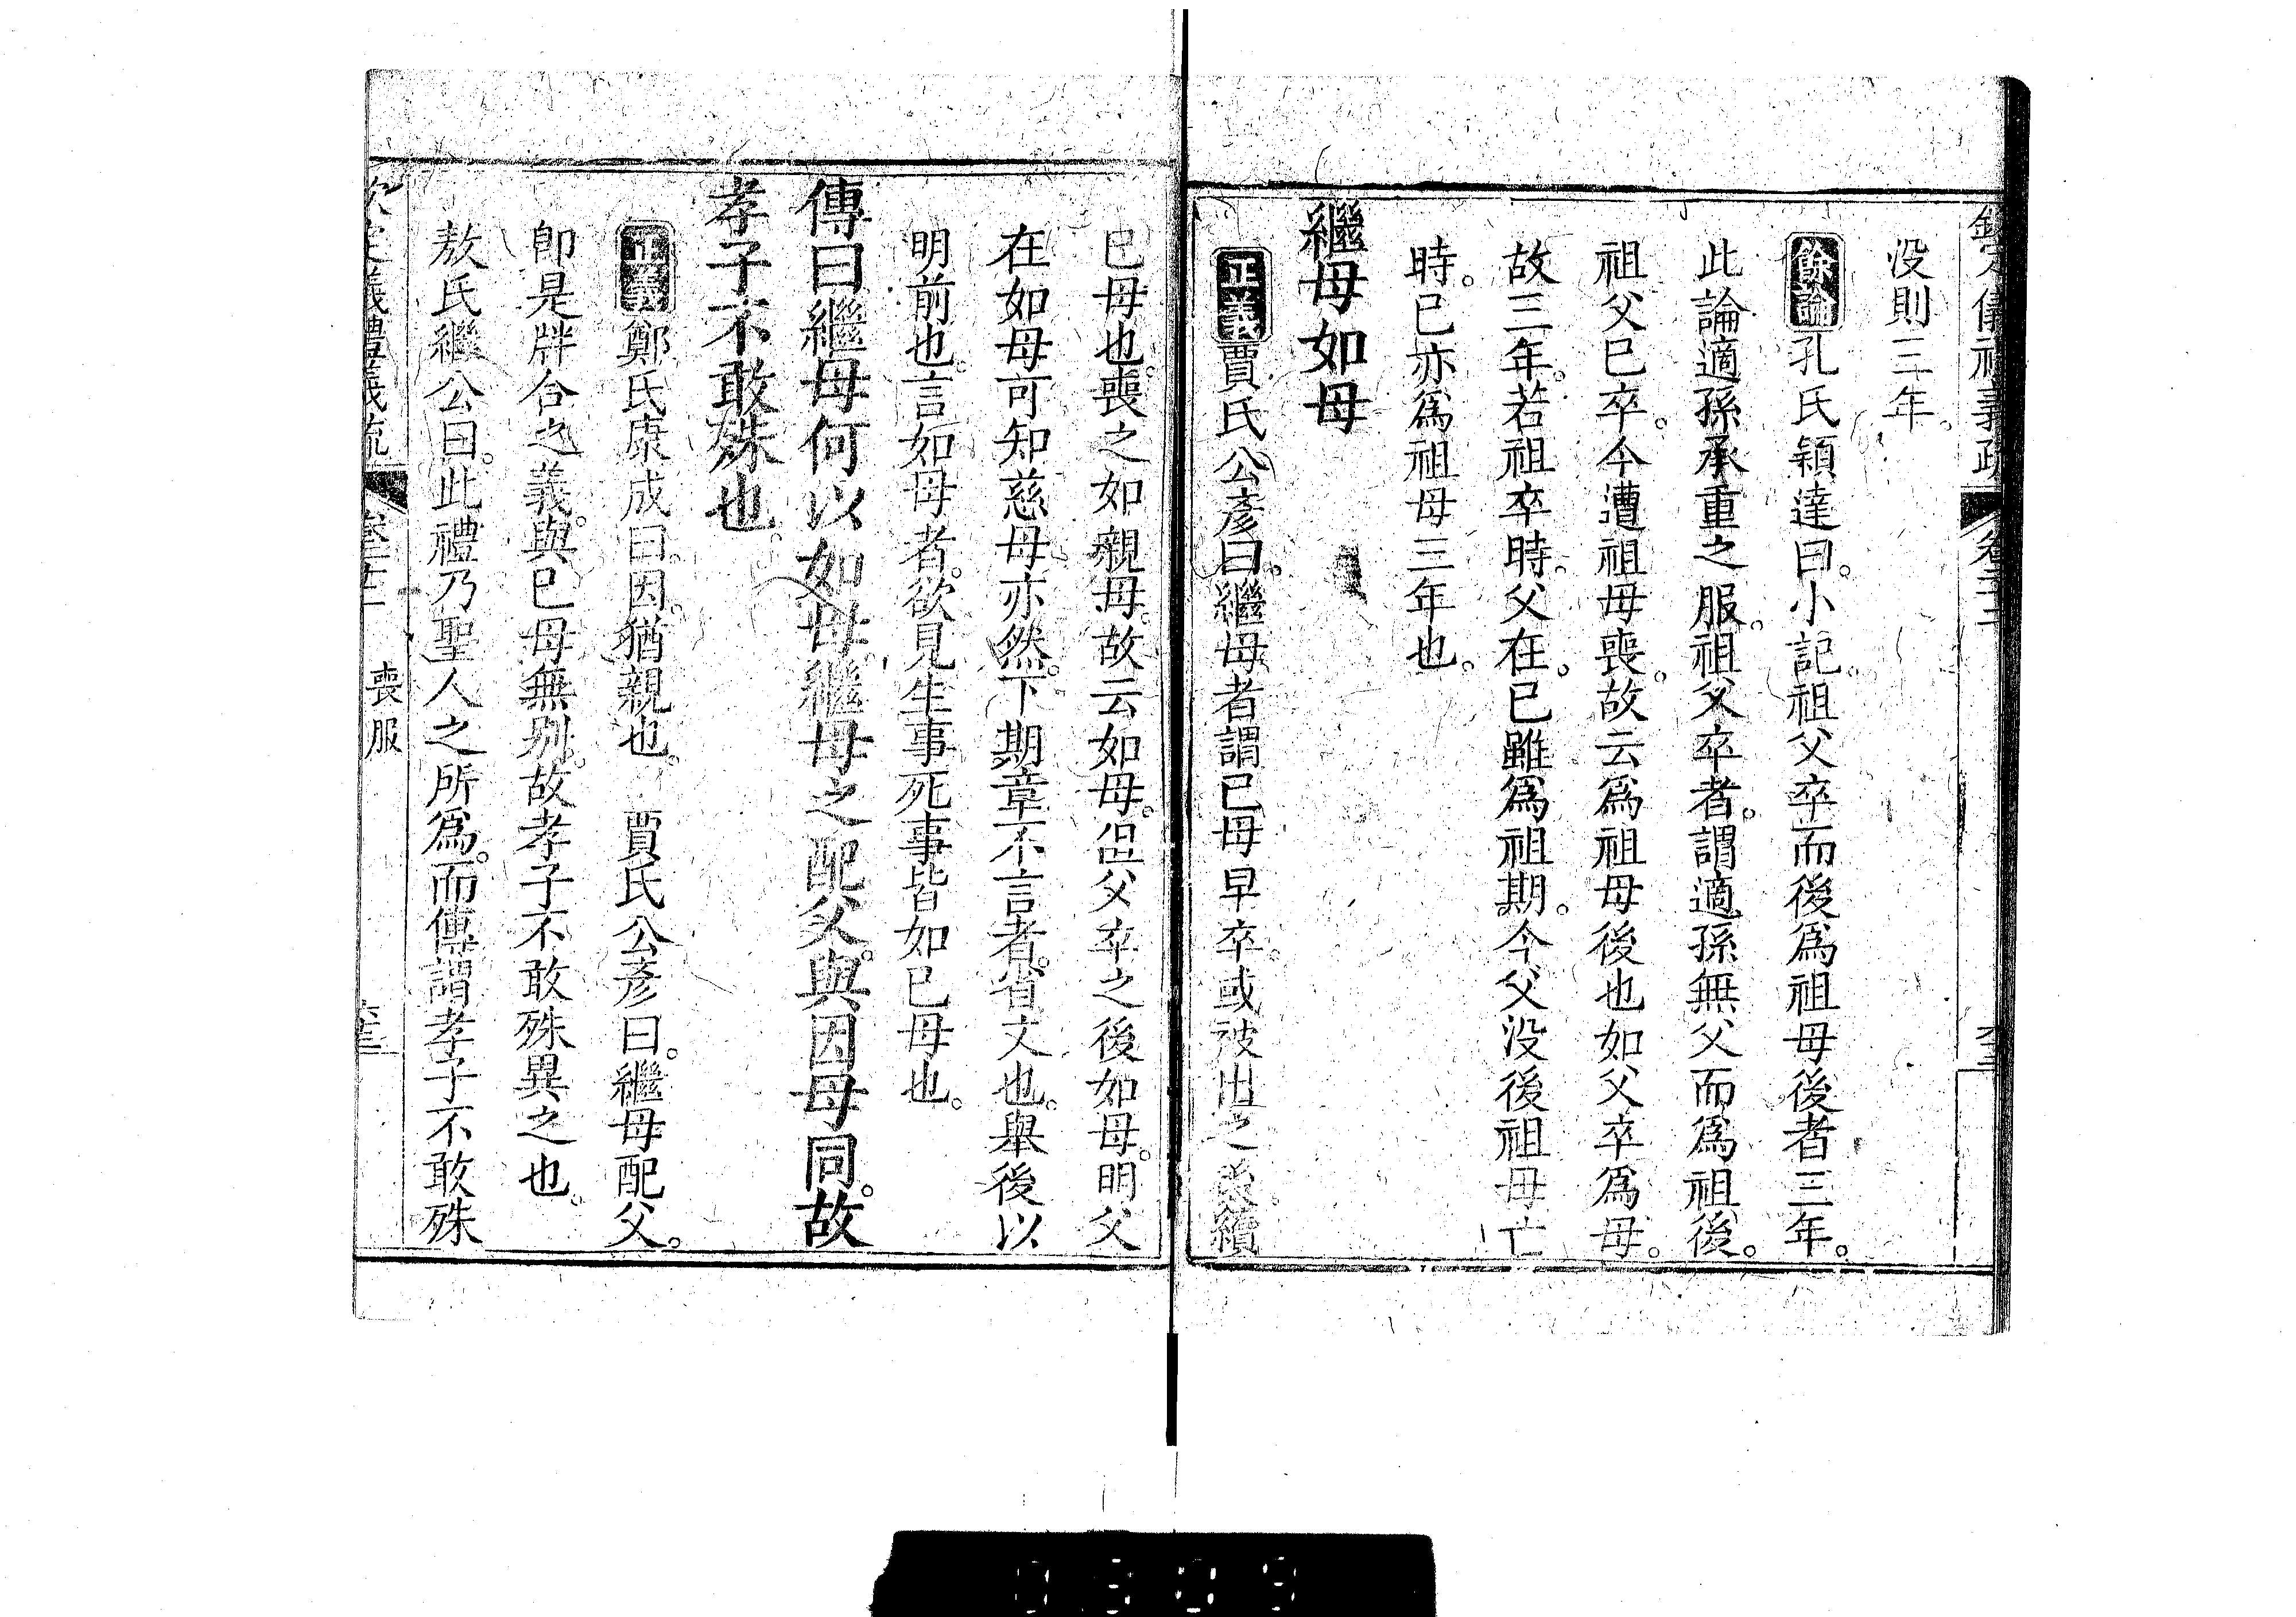 欽定儀禮義疏 卷二十二
没則三年。
餘論孔氏穎達曰。小記。祖父卒而後爲祖母後者三年。
此論適孫承重之服。祖父卒者。謂適孫無父而爲祖後。
祖父已卒。今遭祖母喪。故云爲祖母後也如父卒爲母。
故三年。若祖卒時。父在。已雖爲祖期。今父没後祖母亡
時。已亦爲祖母三年也。
繼母如母
正義賈氏公彥曰。繼母者謂已母早卒。或被出之後。續
已母也。喪之如親母。故云如母。但父卒之後如母。明父
在如母可知慈母亦然。下期章不言者。省文也。舉後以
明前也。言如母者。欲見生事死事皆如已母也。
傳曰繼母何以如母繼母之配父。與因母同。故
孝子不敢殊也
正義鄭氏康成曰。因。猶親也。 賈氏公彥曰。繼母配父。
卽是牉合之義。與已母無別。故孝子不敢殊異之也。
敖氏繼公曰。此禮乃聖人之所爲。而傳謂孝子不敢殊
欽定儀禮義疏 卷二十二 喪服
0309